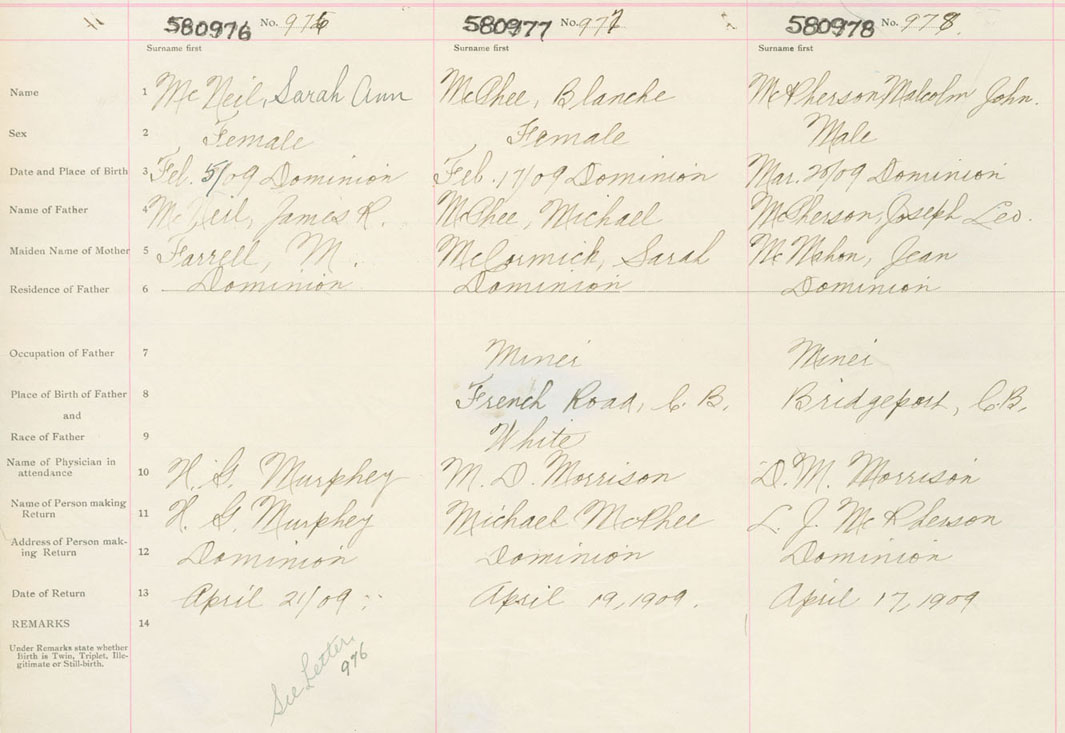 580976 No. 976 580977 No. 977 580978 No. 978
Surname first Surname first Surname first
Name 1 McNeil, Sarah Ann McPhee, Blanche McPherson Malcolm John.
Sex 2 Female Female Male
Date and Place of Birth 3 Feb. 5/09 Dominion Feb. 17/09 Dominion Mar. 20/09 Dominion
Name of Father 4 McNeil, James R. McPhee, Michael McPherson, Joseph Leo.
Maiden Name of Mother 5 Farrell, M. McCormick, Sarah McMahon, Jean
Residence of Father 6 Dominion Dominion Dominion
Occupation of Father 7 Miner Miner
Place of Birth of Father 8 French Road, C. B. Bridgeport, C.B.
and
Race of Father 9 White
Name of Physician in
attendance 10 H. G. Murphey M. D. Morrison D. M. Morrison
Name of Person making
Return 11 H. G. Murphey Michael McPhee L. J. McPherson
Address of Person mak-
ing Return 12 Dominion Dominion Dominion
Date of Return 13 April 21/09 April 19, 1909. April 17, 1909
REMARKS 14
Under Remarks state whether
Birth is Twin, Triplet, Ille-
gitimate or Still-birth.
See Letter
976